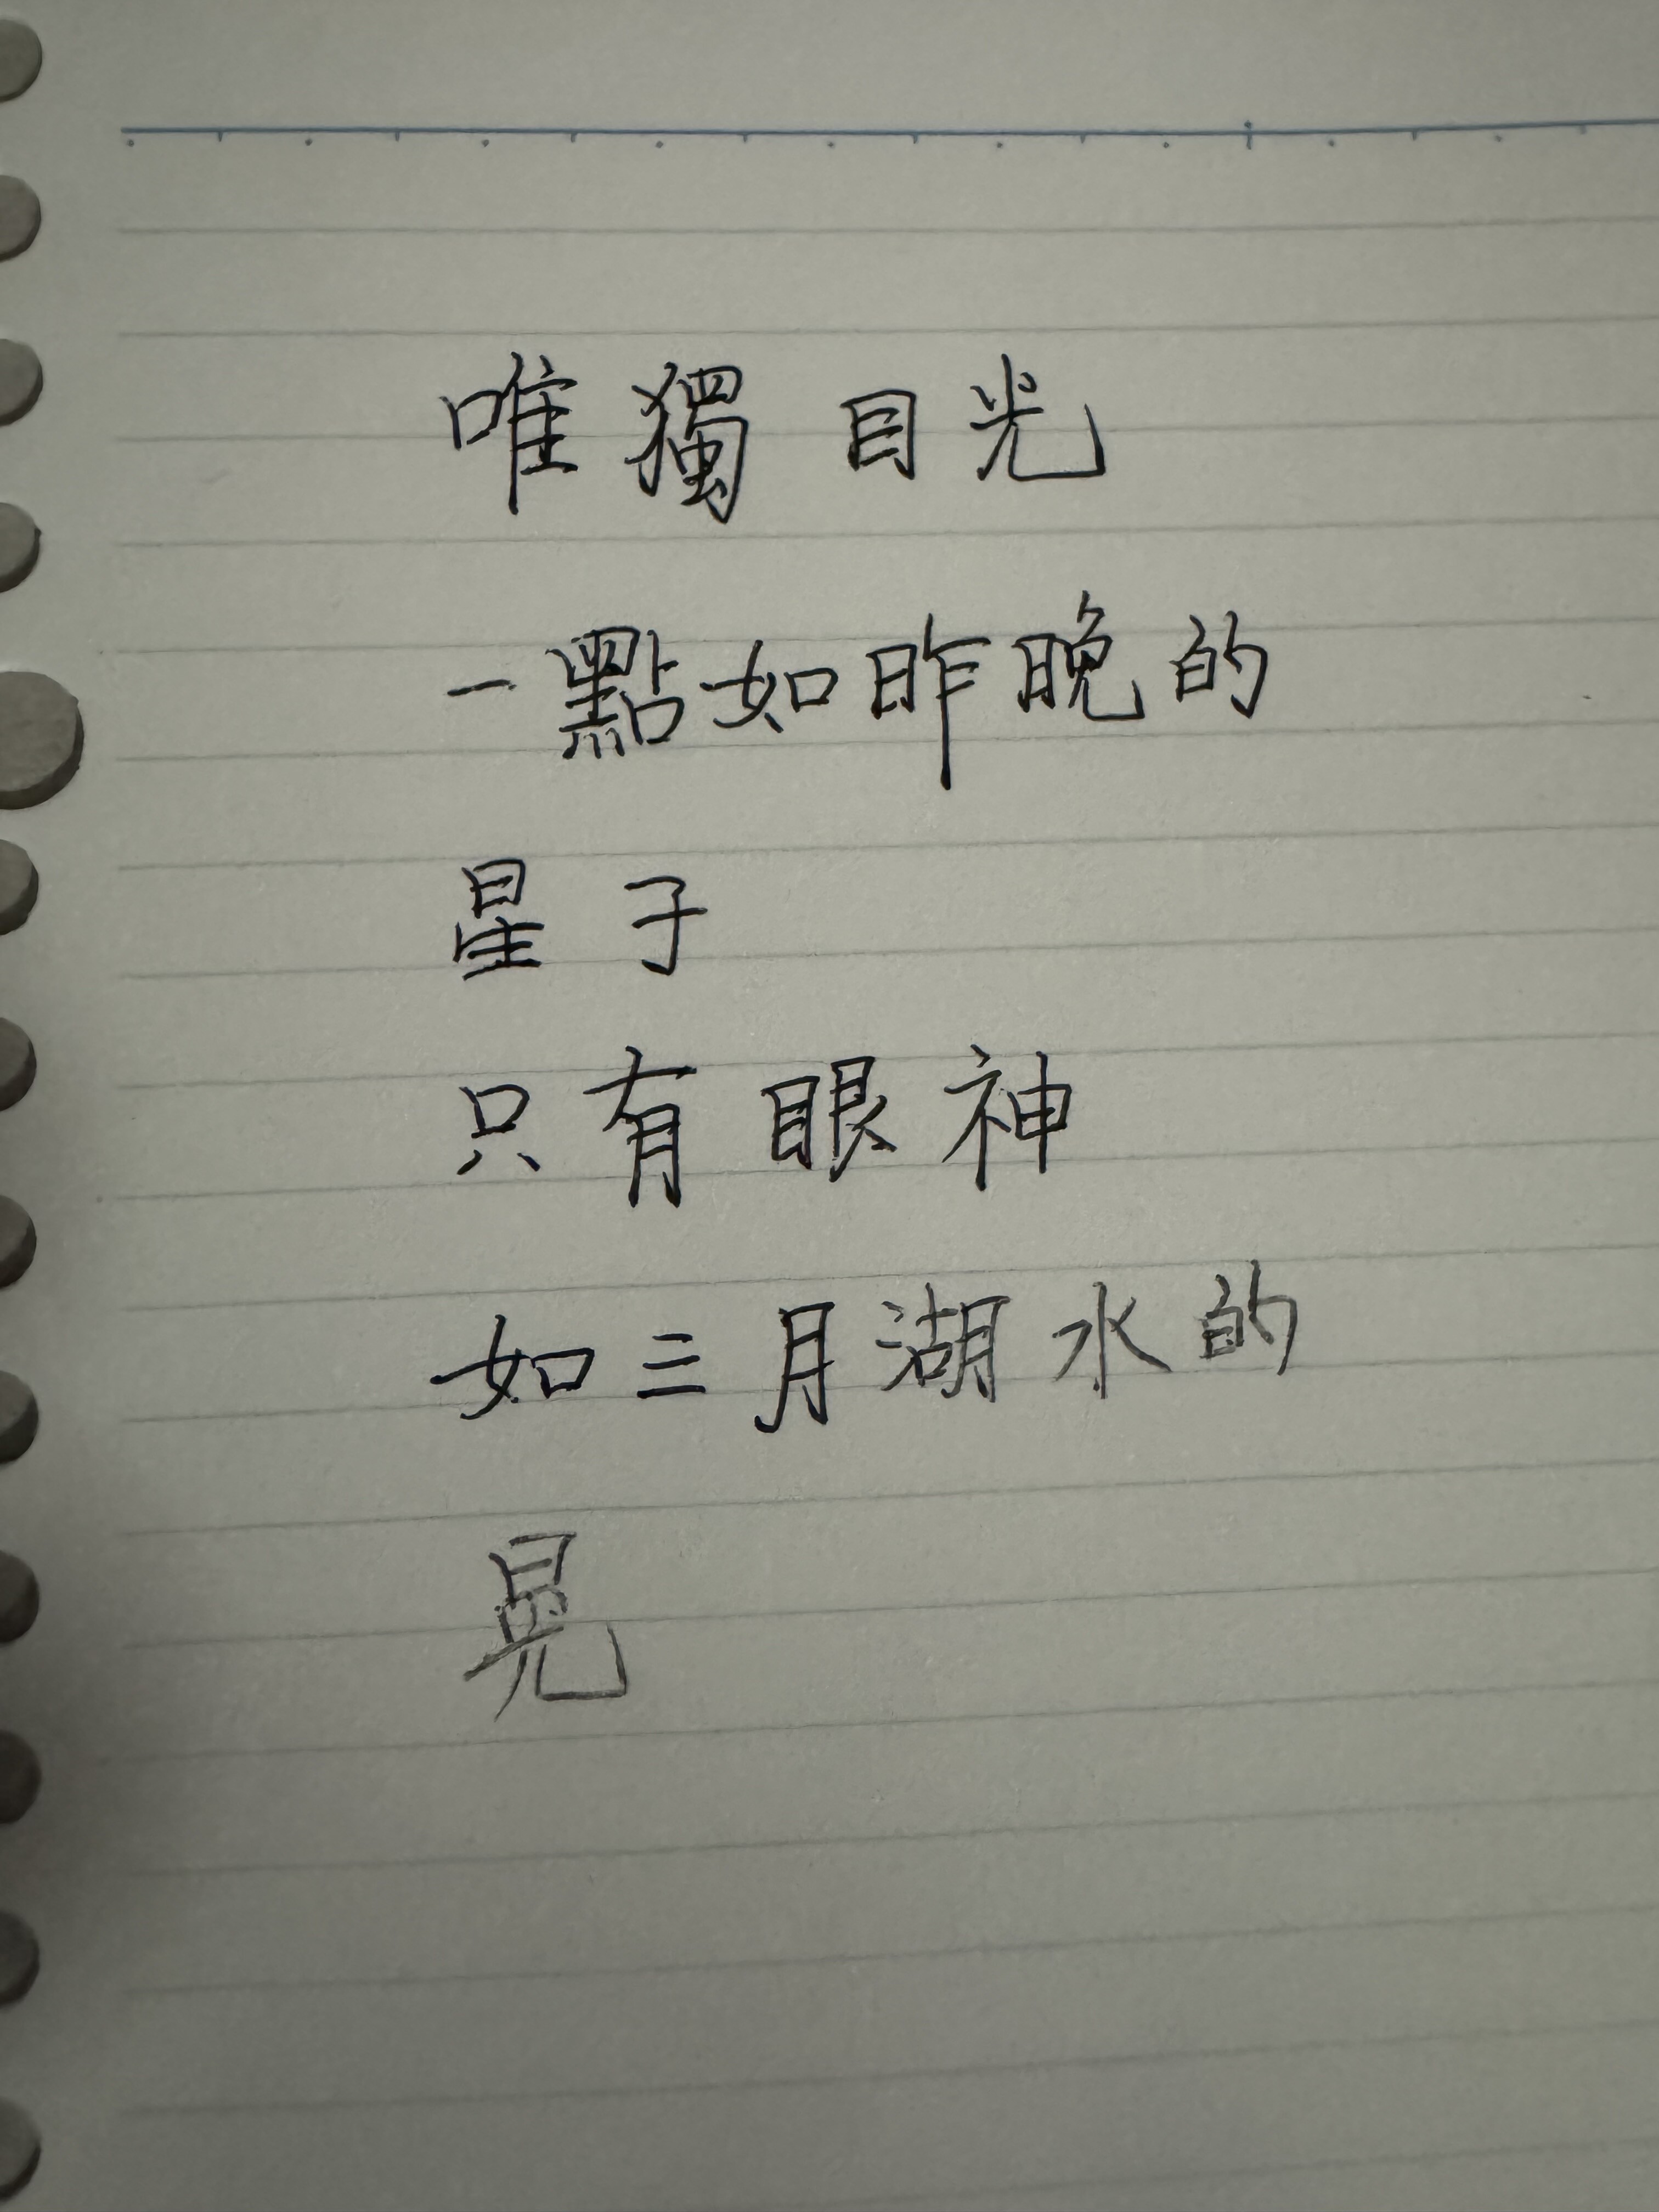 唯獨目光
一點如昨晚的
星子
只有眼神
如三月湖水的
晃